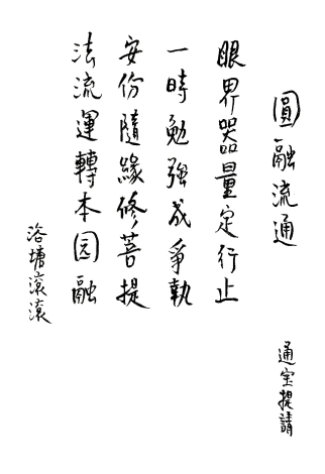 圓融流通
眼界器量定行止
一時勉強成爭執
安份隨緣修菩提
法流運轉本园融
洛塘滾滾
通宝提請